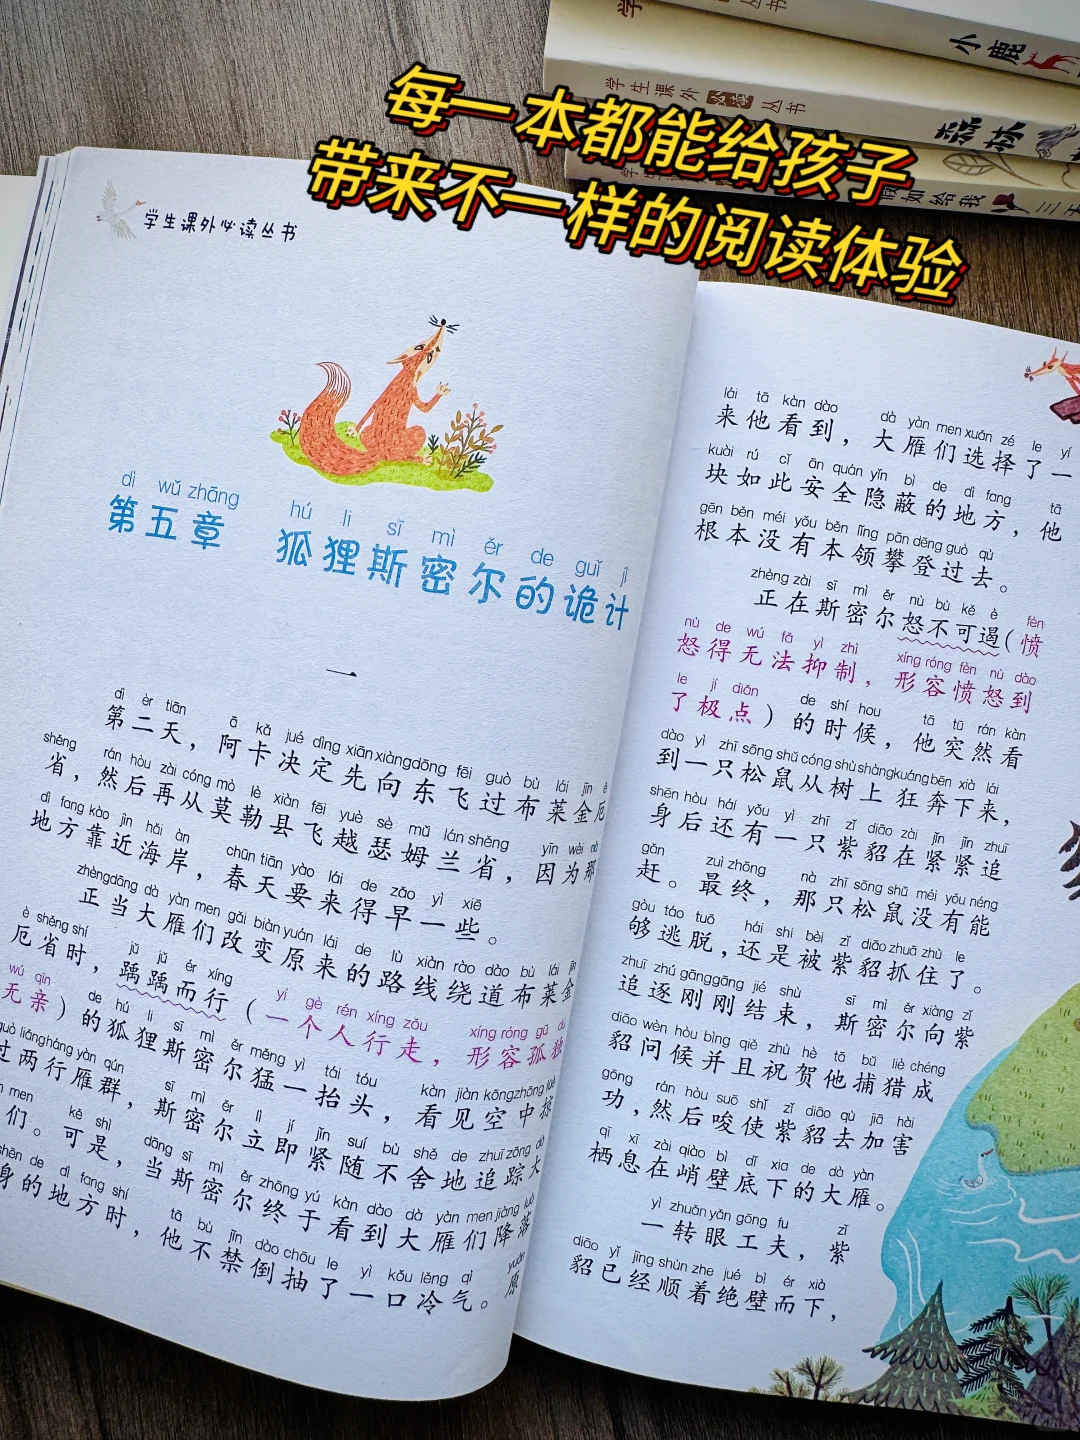 每一本都能给孩子
带来不一样的阅读体验
小鹿
学生课外必读丛书
森林
假如给我三天
学生课外必读丛书
dì wǔ zhāng hú li sī mì ěr de guǐ jì
第五章 狐狸斯密尔的诡计
一
dì èr tiān ā kǎ jué dìng xiān xiàng dōng fēi guò bù lái jīn è
第二天，阿卡决定先向东飞过布莱金厄
shěng rán hòu zài cóng mò lè xiàn fēi yuè sè mǔ lán shěng yīn wèi nà
省，然后再从莫勒县飞越瑟姆兰省，因为那
dì fang kào jìn hǎi àn chūn tiān yào lái de zǎo yì xiē
地方靠近海岸，春天要来得早一些。
zhèng dāng dà yàn men gǎi biàn yuán lái de lù xiàn rào dào bù lái jīn
正当大雁们改变原来的路线绕道布莱金
è shěng shí jǔ jǔ ér xíng yí gè rén xíng zǒu xíng róng gū dú
厄省时，踽踽而行（一个人行走，形容孤独
wú qīn de hú li sī mì ěr měng yì tái tóu kàn jiàn kōng zhōng lüè
无亲）的狐狸斯密尔猛一抬头，看见空中掠
guò liǎng háng yàn qún sī mì ěr lì jí jǐn suí bù shě de zhuī zōng dà
过两行雁群，斯密尔立即紧随不舍地追踪大
men kě shì dāng sī mì ěr zhōng yú kàn dào dà yàn men jiàng luò
们。可是，当斯密尔终于看到大雁们降落
shēn de dì fang shí tā bù jīn dào chōu le yì kǒu lěng qì yuán
身的地方时，他不禁倒抽了一口冷气。原
lái tā kàn dào dà yàn men xuǎn zé le yí
来他看到，大雁们选择了一
kuài rú cǐ ān quán yǐn bì de dì fang tā
块如此安全隐蔽的地方，他
gēn běn méi yǒu běn lǐng pān dēng guò qù
根本没有本领攀登过去。
zhèng zài sī mì ěr nù bù kě è fèn
正在斯密尔怒不可遏（愤
nù de wú fǎ yì zhì xíng róng fèn nù dào
怒得无法抑制，形容愤怒到
le jí diǎn de shí hou tā tū rán kàn
了极点）的时候，他突然看
dào yì zhī sōng shǔ cóng shù shàng kuáng bēn xià lái
到一只松鼠从树上狂奔下来，
shēn hòu hái yǒu yì zhī zǐ diāo zài jǐn jǐn zhuī
身后还有一只紫貂在紧紧追
gǎn zuì zhōng nà zhī sōng shǔ méi yǒu néng
赶。最终，那只松鼠没有能
gòu táo tuō hái shi bèi zǐ diāo zhuā zhù le
够逃脱，还是被紫貂抓住了。
zhuī zhú gāng gāng jié shù sī mì ěr xiàng zǐ
追逐刚刚结束，斯密尔向紫
diāo wèn hòu bìng qiě zhù hè tā bǔ liè chéng
貂问候并且祝贺他捕猎成
gōng rán hòu suō shǐ zǐ diāo qù jiā hài
功，然后唆使紫貂去加害
qī xī zài qiào bì dǐ xia de dà yàn
栖息在峭壁底下的大雁。
yì zhuǎn yǎn gōng fu zǐ
一转眼工夫，紫
diāo yǐ jīng shùn zhe jué bì ér xià
貂已经顺着绝壁而下，